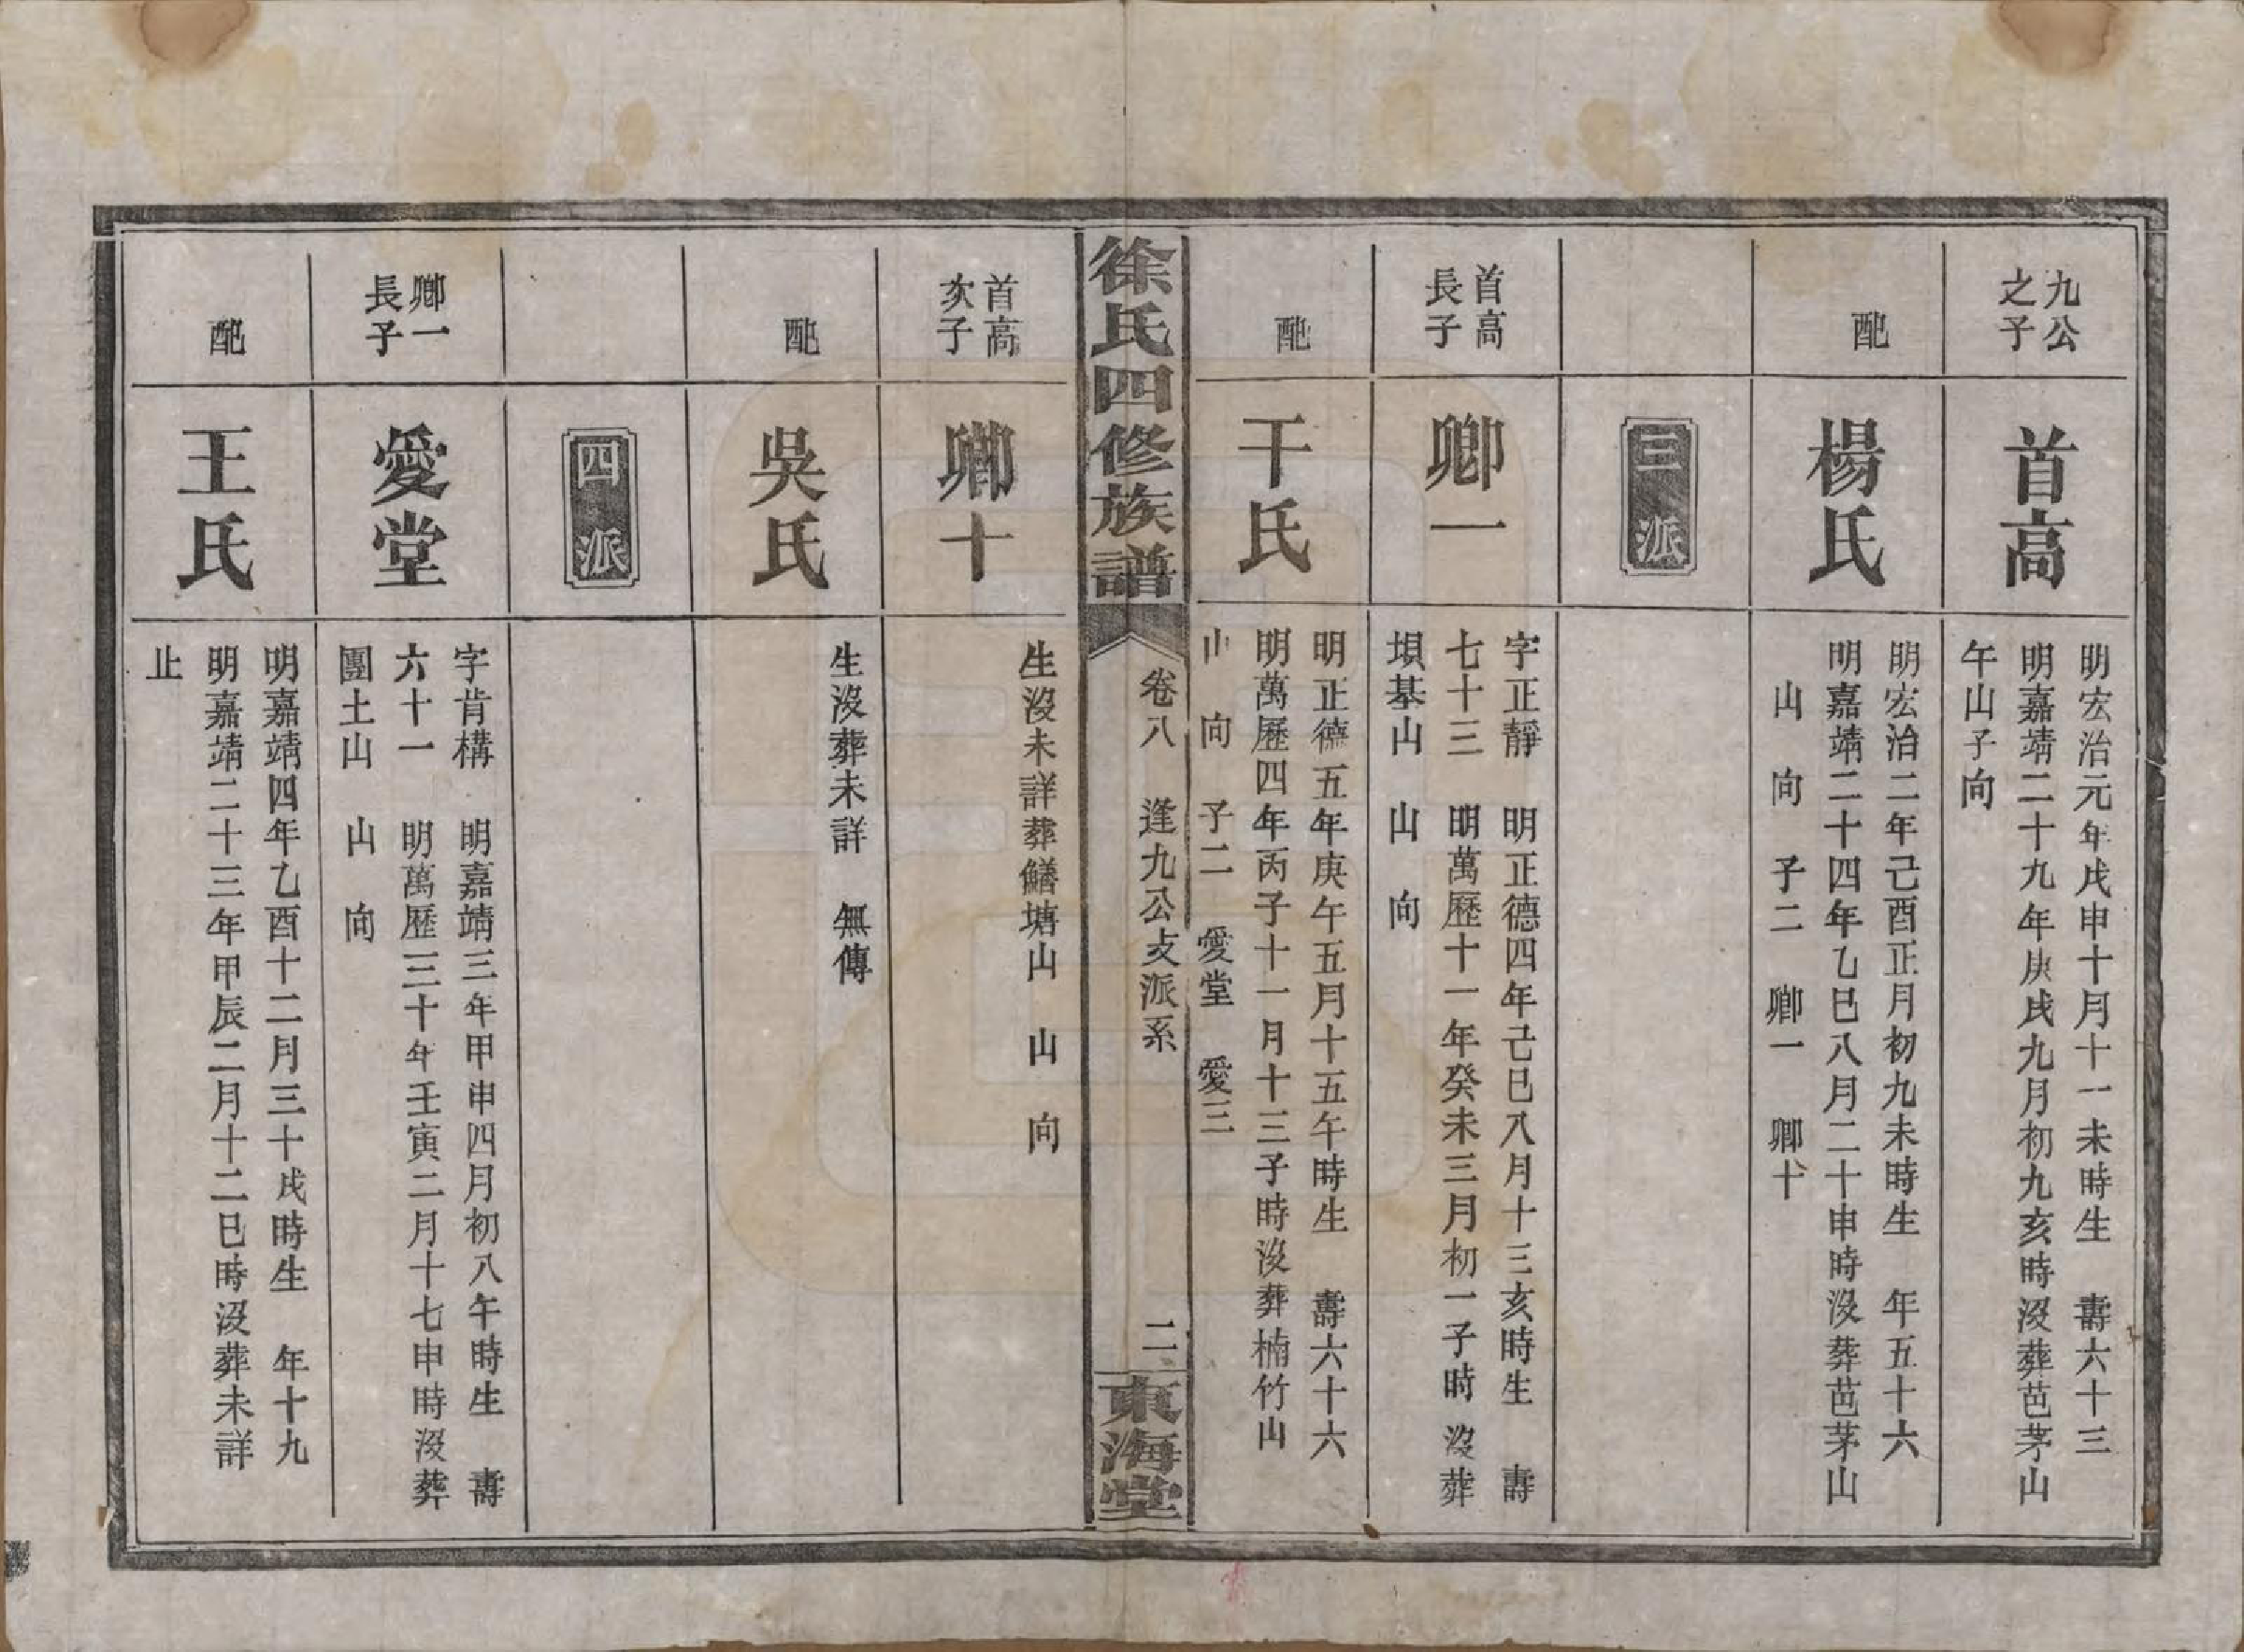 九公
之子
首高
明宏治元年戊申十月十一未時生　壽六十三
明嘉靖二十九年庚戌九月初九亥時沒葬芭茅山
午山子向
配
楊氏
明宏治二年己酉正月初九未時生　年五十六
明嘉靖二十四年乙巳八月二十申時沒葬芭茅山
山　向　子二　卿一　卿十
三派
首高
長子
卿一
字正靜　明正德四年己巳八月十三亥時生　壽
七十三　明萬歷十一年癸未三月初一子時沒葬
垻基山　山　向
配
干氏
明正德五年庚午五月十五午時生　壽六十六
明萬歷四年丙子十一月十三子時沒葬楠竹山
山　向　子二　愛堂　愛三
徐氏四修族譜
卷八　逢九公支派系
二
東海堂
首高
次子
卿十
生沒未詳葬鱔塘山　山　向
配
吳氏
生沒葬未詳　無傳
四派
卿一
長子
愛堂
字肯構　明嘉靖三年甲申四月初八午時生　壽
六十一　明萬歷三十年壬寅二月十七申時沒葬
團土山　山　向
配
王氏
明嘉靖四年乙酉十二月三十戌時生　年十九
明嘉靖二十三年甲辰二月十二巳時沒葬未詳
止